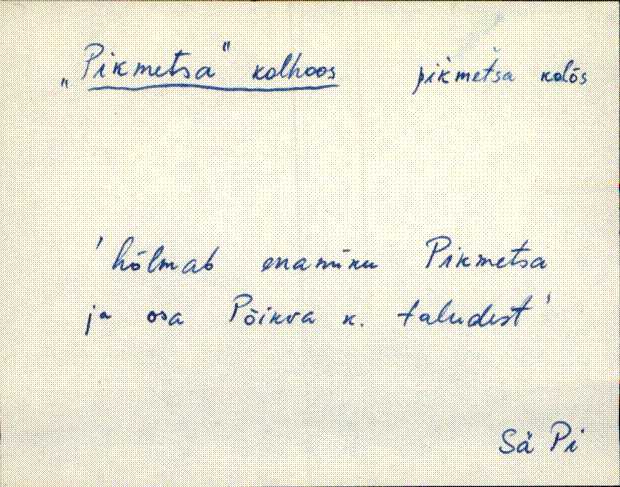 „Pikmetsa" kolhoos pikmetsa kolōs
'hõlmab enamiku Pikmetsa
ja osa Põikva k. taludest'
Sä Pi